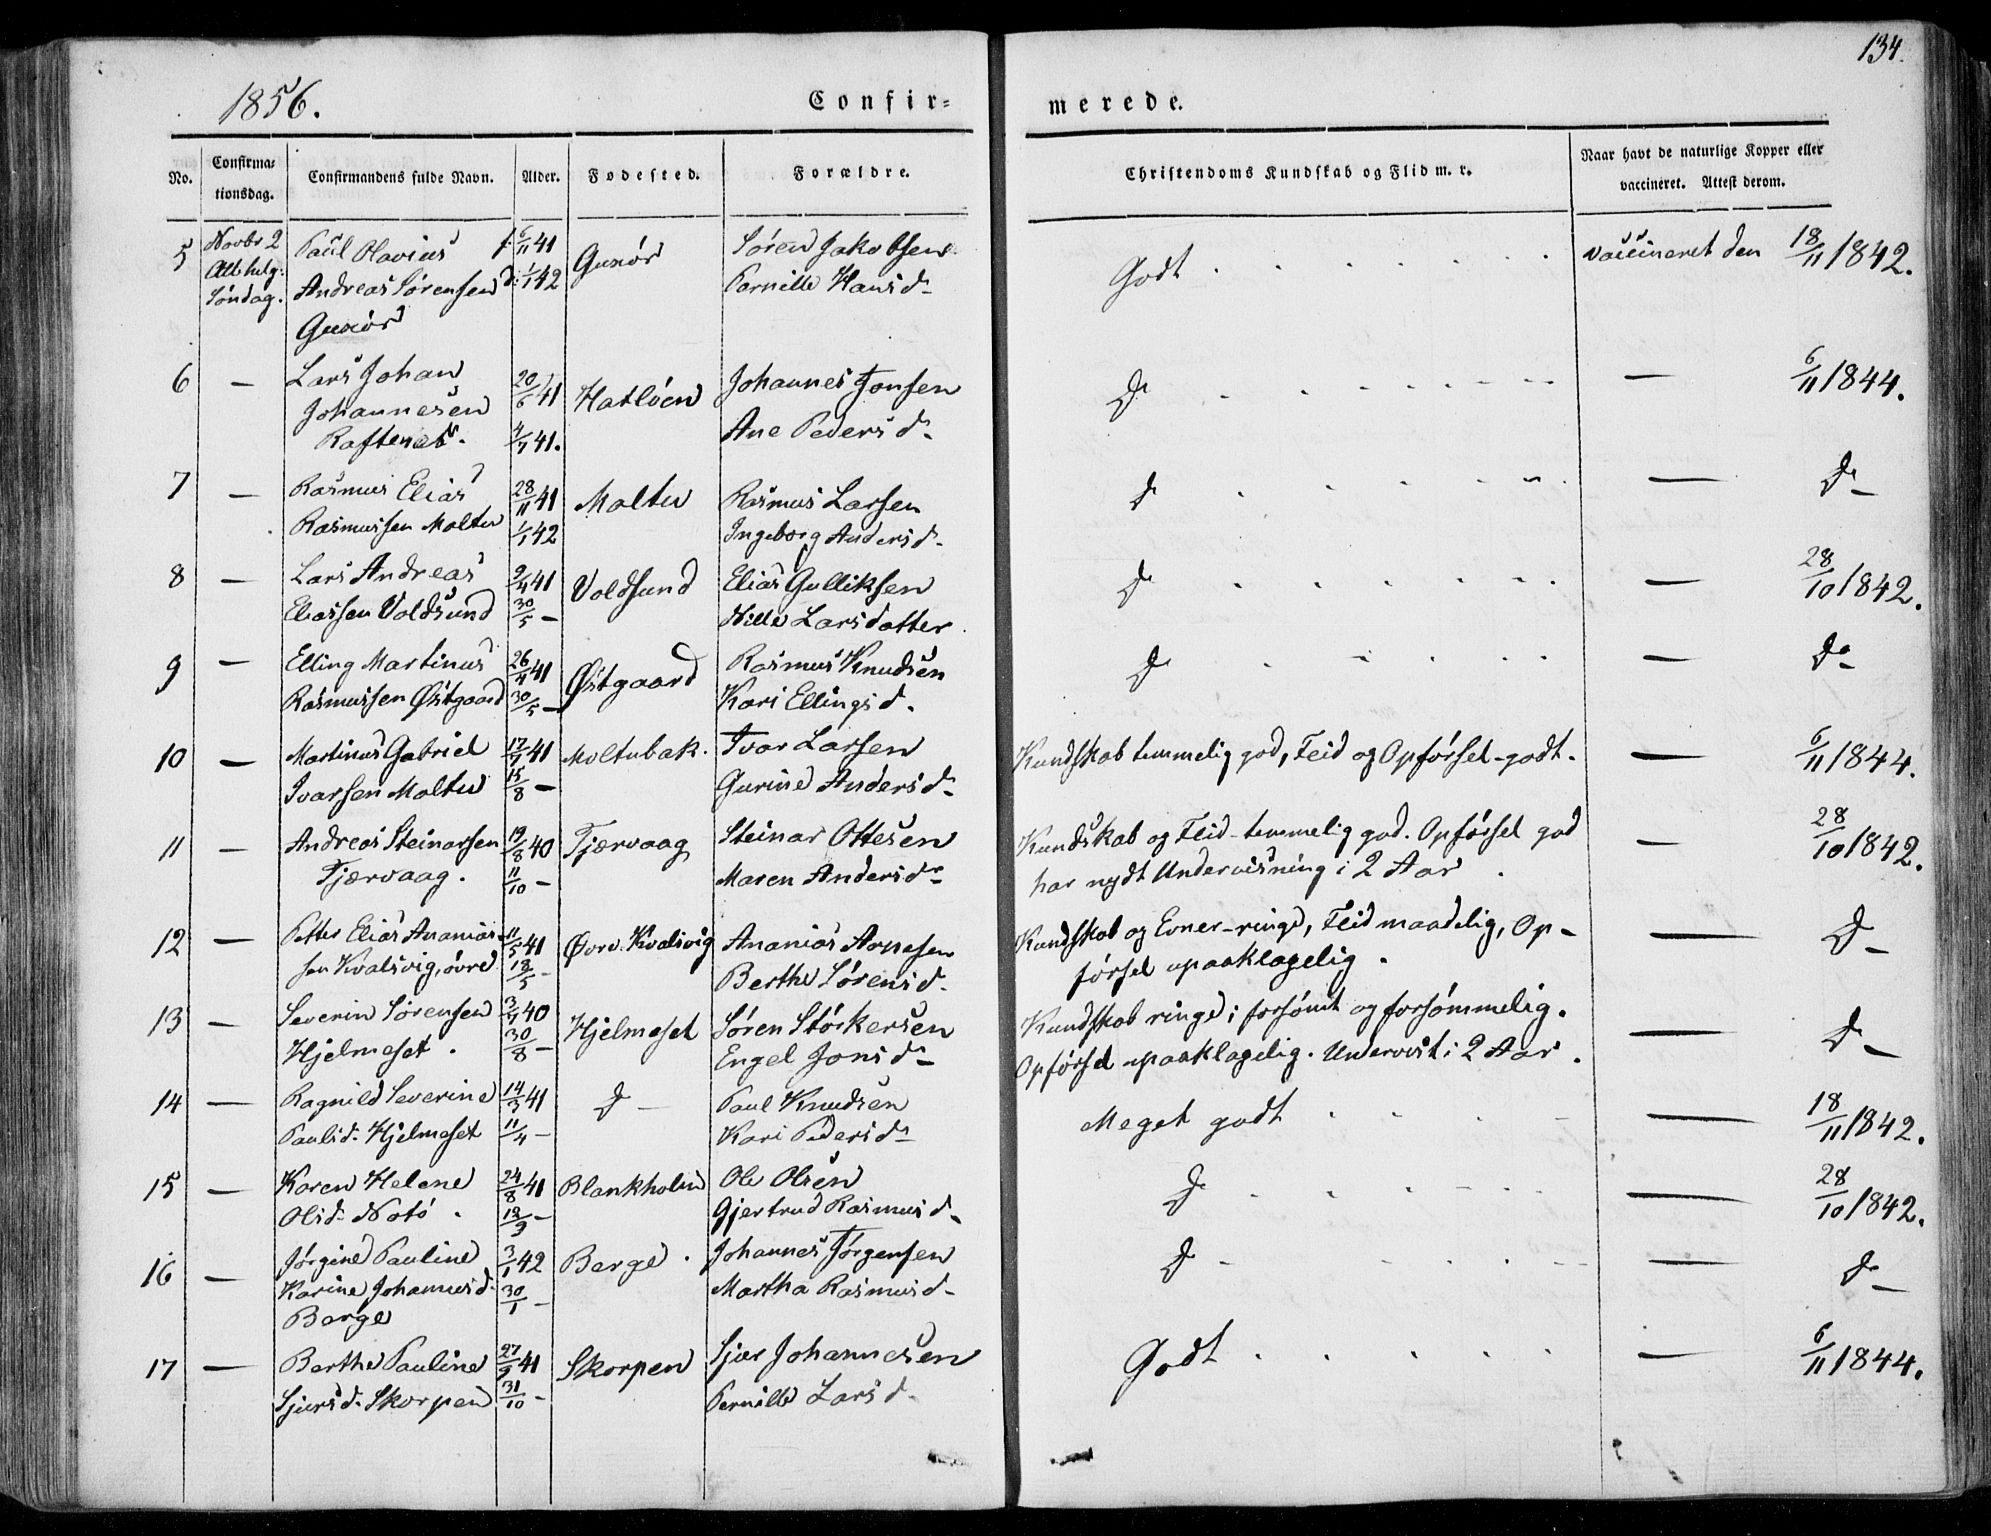 134.
1856.
Confir-
merede.
No.
Confirma-
tionsdag.
Confirmandens fulde Navn.
Alder.
Fødested.
Forældre.
Christendoms Kundskab og Flid m. v.
Naar havt de naturlige Kopper eller
vaccineret. Attest derom.
5 Novbr 2 Paul Olavius f: 6/11 41 Guxör Søren Jakobsen Godt vaccineret den 18/11 1842.
All helg: Andreas Sørensen d: 1/1 42 Pernille Hansd-
Söndag. Guxör
6 — Lars Johan 20/6 41 Hatlöen Johannes Jonsen D — 6/11 1844.
Johannesen Ane Pedersd-
Raftenes. 4/7 41.
7 — Rasmus Elias 28/11 41 Moltu Rasmus Larsen D — D-
Rasmussen Moltu 1/1 42 Ingeborg Andersd-
8 — Lars Andreas 9/4 41 Voldsund Elias Gulliksen D — 28/10 1842.
Eliassen Voldsund 30/5 — Hille Larsdatter
9 — Elling Martinus 26/4 41 Østgaard Rasmus Knudsen D — Do-
Rasmussen Østgaard 30/5 — Kari Ellingsd.
10 — Martinus Gabriel 17/7 41 Moltubak. Ivar Larsen Kundskab temmelig god, Flid og Opførsel-godt. — 6/11 1844.
Ivarsen Moltu 15/8 — Gurine Andersd-
11 — Andreas Steinarsen 19/8 40 Tjærvaag Steinar Ottesen Kundskab og Flid-temmelig god. Opførsel god — 28/10 1842.
Tjærvaag. 11/10 — Maren Andersdr har nydt Undervisning i 2 Aar.
12 — Petter Elias Ananias- 11/5 41 Øvre Kvalsvig Ananias Arnesen Kundskab og Evner-ringe, Flid maadelig, Op- — D-
sen Kvalsvig, övre 18/5 — Berthe Sørensd. førsel upaaklagelig.
13 — Severin Sørensen 3/7 40 Hjelmeset Søren Størkersen Kundskab ringe; forsömt og forsömmelig. — D-
Hjelmeset. 30/8 — Engel Jonsd- Opførsel upaaklagelig. Undervist i 2 Aar.
14 — Ragnild Severine 14/3 41 D — Paul Knudsen Meget godt — 18/11 1842.
Paulsd. Hjelmeset 11/4 — Kari Pedersd-
15 — Karen Helene 24/8 41 Blankholm Ole Olsen D — 28/10 1842.
Olsd. Notö. /9 — Gjertrud Rasmusd-
16 — Jørgine Pauline 3/1 42 Berge. Johannes Jørgensen D — D-
Karine Johannesd. 30/1 — Martha Rasmusd-
Berge
17 — Berthe Pauline 27/9 41 Skorpen Sjur Johannesen Godt — 6/11 1844.
Sjursd. Skorpen 31/10 — Pernille Larsd-